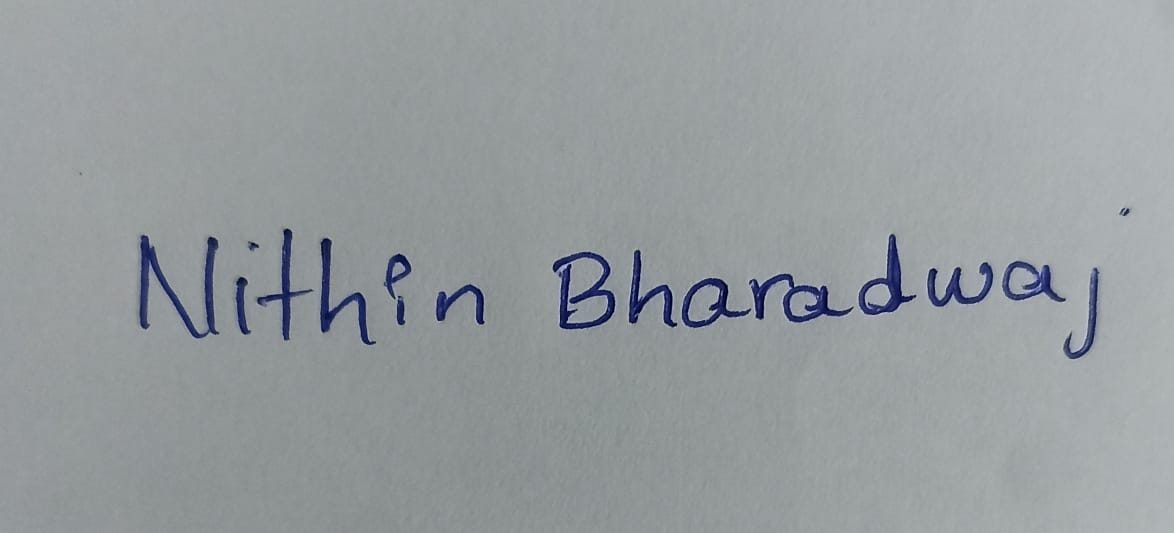 Nithin Bharadwaj